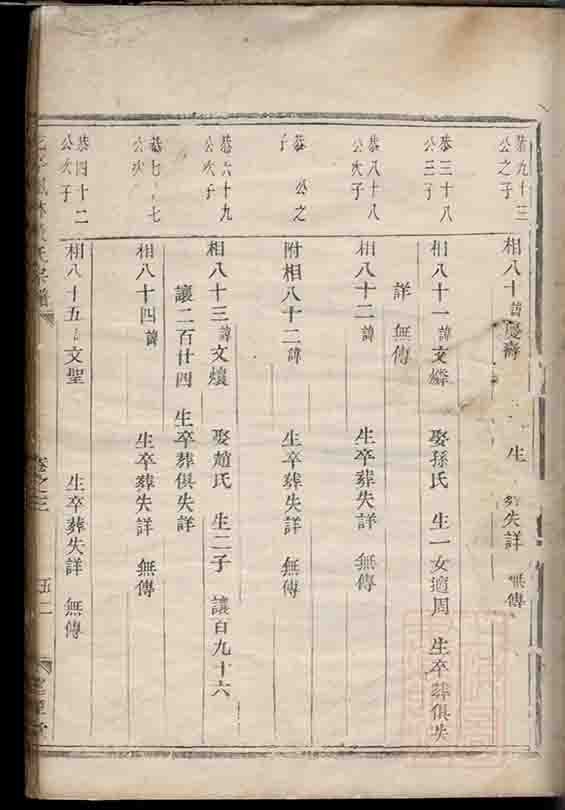 恭九十三
公之子
相八十 諱慶壽 生 葬失詳 無傳
恭三十八
公三子
相八十一 諱文 娶孫氏 生一女適周 生卒葬俱失
詳 無傳
恭八十八
公次子
相八十二 諱 生卒葬失詳 無傳
恭 公之
子
附相八十二 諱 生卒葬失詳 無傳
恭六十九
公次子
相八十三 諱文 娶趙氏 生二子 讓百九十六
讓二百廿四 生卒葬俱失詳
恭七 七
公次
相八十四 諱 生卒葬失詳 無傳
恭四十二
公次子
相八十五 文聖 生卒葬失詳 無傳
氏宗譜 卷之三 五二